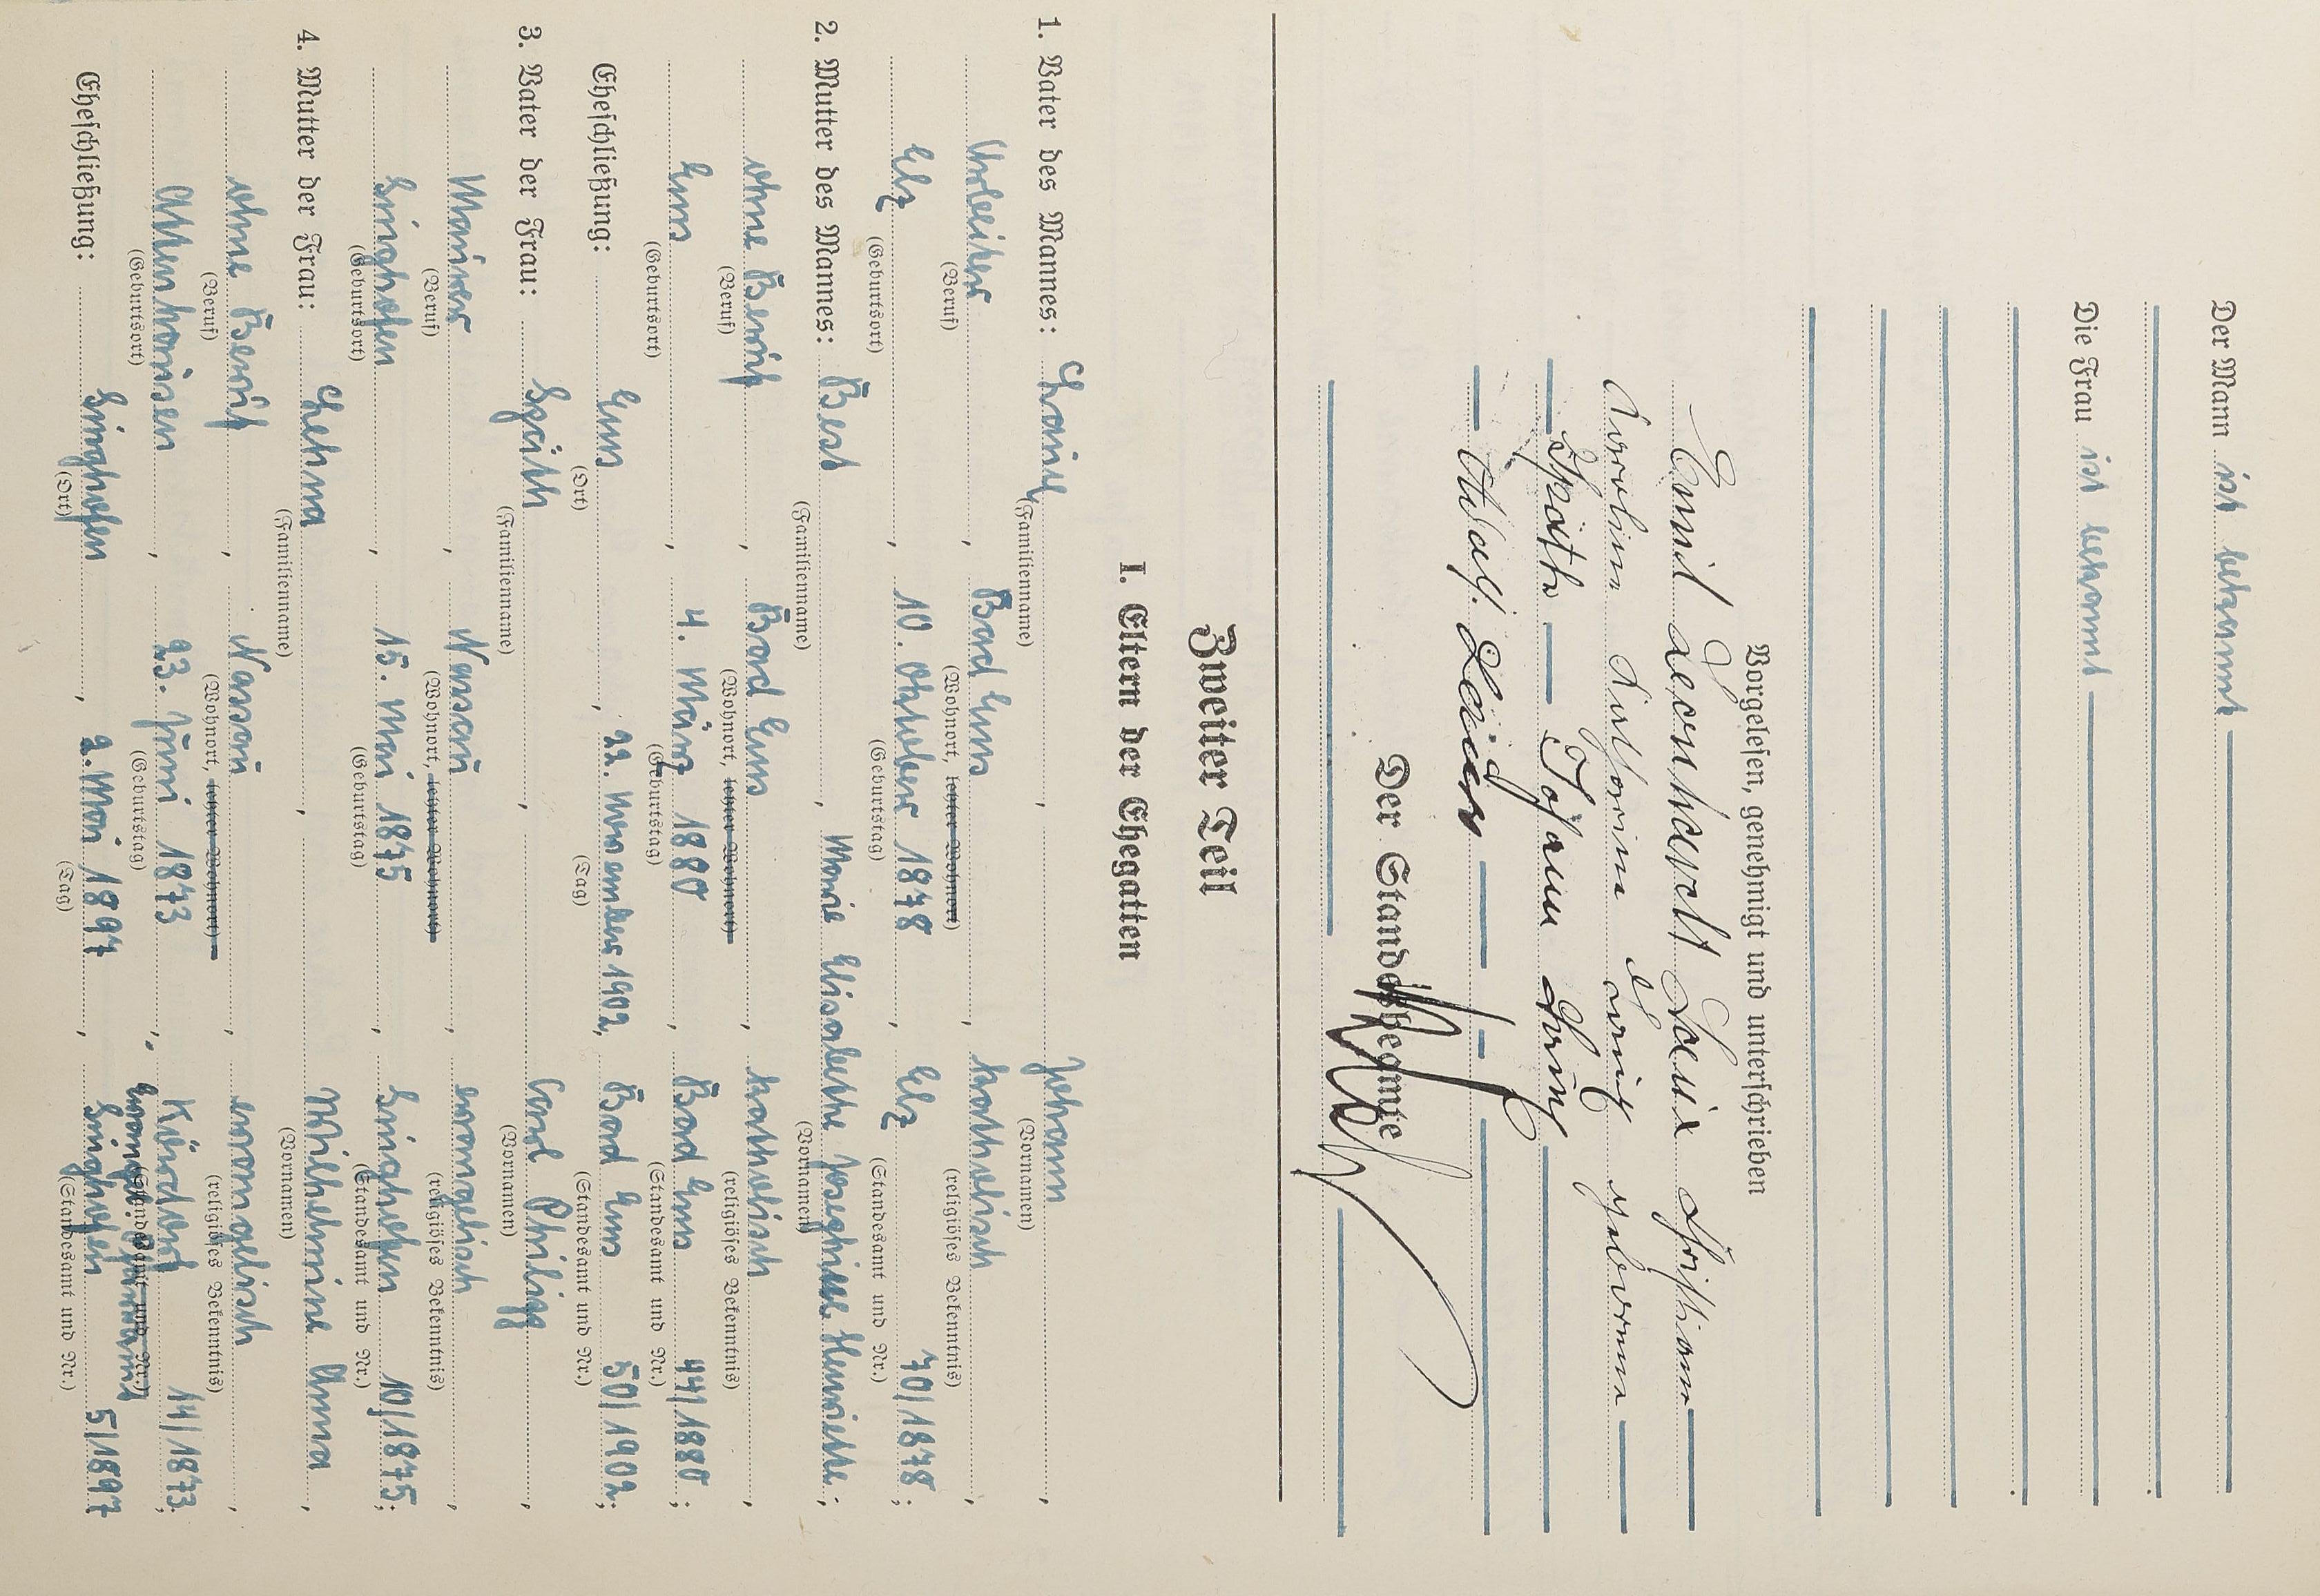 Der Mann ist bekannt
Die Frau ist bekannt
Vorgelesen, genehmigt und unterschrieben
Emil Leonhardt Louis Christian
geborene
Späth Johann
Adolf
Der Standesbeamte
Zweiter Teil
I. Eltern der Ehegatten
1. Vater des Mannes: Johann
(Familienname) (Vornamen)
Arbeiter, Bad Ems, katholisch,
(Beruf) (Wohnort, letzter Wohnort) (religiöses Bekenntnis)
Elz, 10. Oktober 1878, Elz 70/1878;
(Geburtsort) (Geburtstag) (Standesamt und Nr.)
2. Mutter des Mannes: Best, Marie Elisabethe Josephine Henriette;
(Familienname) (Vornamen)
ohne Beruf, Bad Ems, katholisch,
(Beruf) (Wohnort, letzter Wohnort) (religiöses Bekenntnis)
Ems, 4. März 1880, Bad Ems 44/1880;
(Geburtsort) (Geburtstag) (Standesamt und Nr.)
Eheschließung: Ems, 22. November 1902, Bad Ems 50/1902;
(Ort) (Tag) (Standesamt und Nr.)
3. Vater der Frau: Späth, Carl Philipp,
(Familienname) (Vornamen)
Maurer, Nassau, evangelisch,
(Beruf) (Wohnort, letzter Wohnort) (religiöses Bekenntnis)
Singhofen, 15. Mai 1875, Singhofen 10/1875;
(Geburtsort) (Geburtstag) (Standesamt und Nr.)
4. Mutter der Frau: Wilhelmine Anna,
(Familienname) (Vornamen)
ohne Beruf, Nassau, evangelisch,
(Beruf) (Wohnort, letzter Wohnort) (religiöses Bekenntnis)
Attenhausen, 23. Juni 1873, Kördorf 14/1873;
(Geburtsort) (Geburtstag) (Standesamt und Nr.)
Eheschließung: Singhofen, 2. Mai 1897, Singhofen 5/1897
(Ort) (Tag) (Standesamt und Nr.)